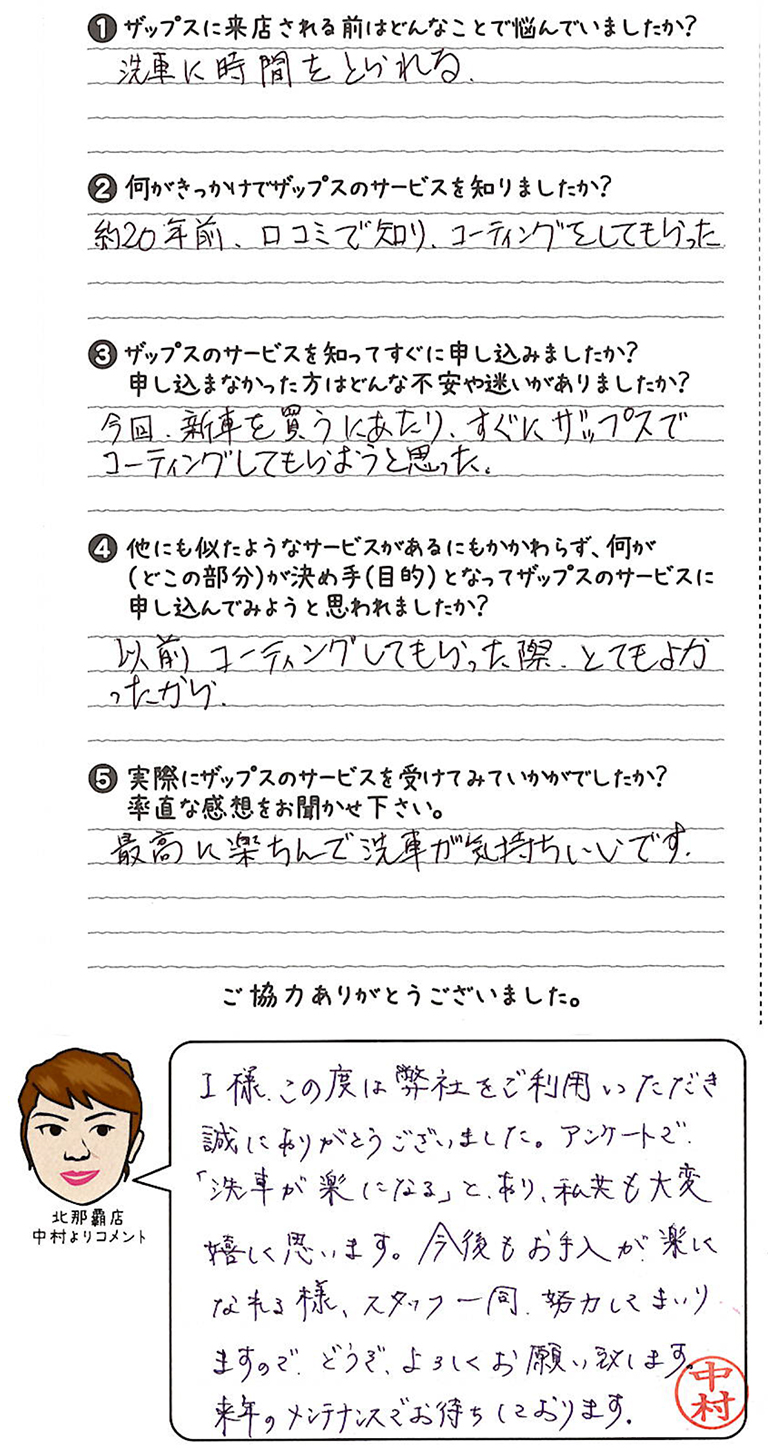 ❶ ザップスに来店される前はどんなことで悩んでいましたか?
洗車に時間をとられる.
❷ 何がきっかけでザップスのサービスを知りましたか?
約20年前、口コミで知り、コーティングをしてもらった
❸ ザップスのサービスを知ってすぐに申し込みましたか?
申し込まなかった方はどんな不安や迷いがありましたか?
今回、新車を買うにあたり、すぐにザップスで
コーティングしてもらおうと思った。
❹ 他にも似たようなサービスがあるにもかかわらず、何が
(どこの部分)が決め手(目的)となってザップスのサービスに
申し込んでみようと思われましたか?
以前コーティングしてもらった際、とてもよか
ったから.
❺ 実際にザップスのサービスを受けてみていかがでしたか?
率直な感想をお聞かせ下さい。
最高に楽ちんで洗車が気持ちいいです.
ご協力ありがとうございました。
I様、この度は弊社をご利用いただき
誠にありがとうございました。アンケートで、
「洗車が楽になる」と、あり、私共も大変
嬉しく思います。今後もお手入が楽しく
なれる様、スタッフ一同、努力してまいり
ますので、どうぞ、よろしくお願い致します。
来年のメンテナンスでお待ちしております.
中村
北那覇店
中村よりコメント